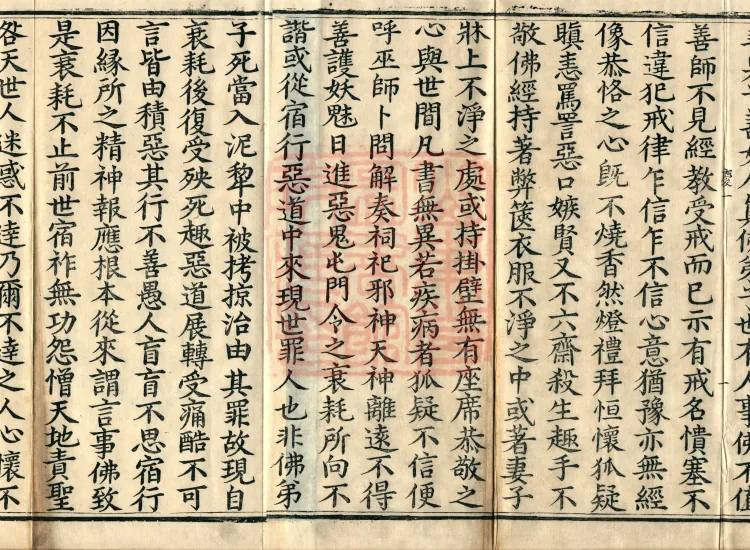 人事佛不值
善師不見經教受戒而已示有戒名憒塞不
信違犯戒律乍信乍不信心意猶豫亦無經
像恭恪之心既不燒香然燈禮拜恒懷狐疑
瞋恚罵詈惡口嫉賢又不六齋殺生趣手不
敬佛經持著弊篋衣服不淨之中或著妻子
牀上不淨之處或持掛壁無有座席恭敬之
心與世間凡書無異若疾病者狐疑不信便
呼巫師卜問解奏祠祀邪神天神離遠不得
善護妖魅日進惡鬼屯門令之衰耗所向不
諧或從宿行惡道中來現世罪人也非佛弟
子死當入泥犂中被拷掠治由其罪故現自
衰耗後復受殃死趣惡道展轉受痛酷不可
言皆由積惡其行不善愚人盲盲不思宿行
因緣所之精神報應根本從來謂言事佛致
是衰耗不止前世宿祚無功怨憎天地責聖
咎天世人迷惑不達乃爾不達之人心懷不